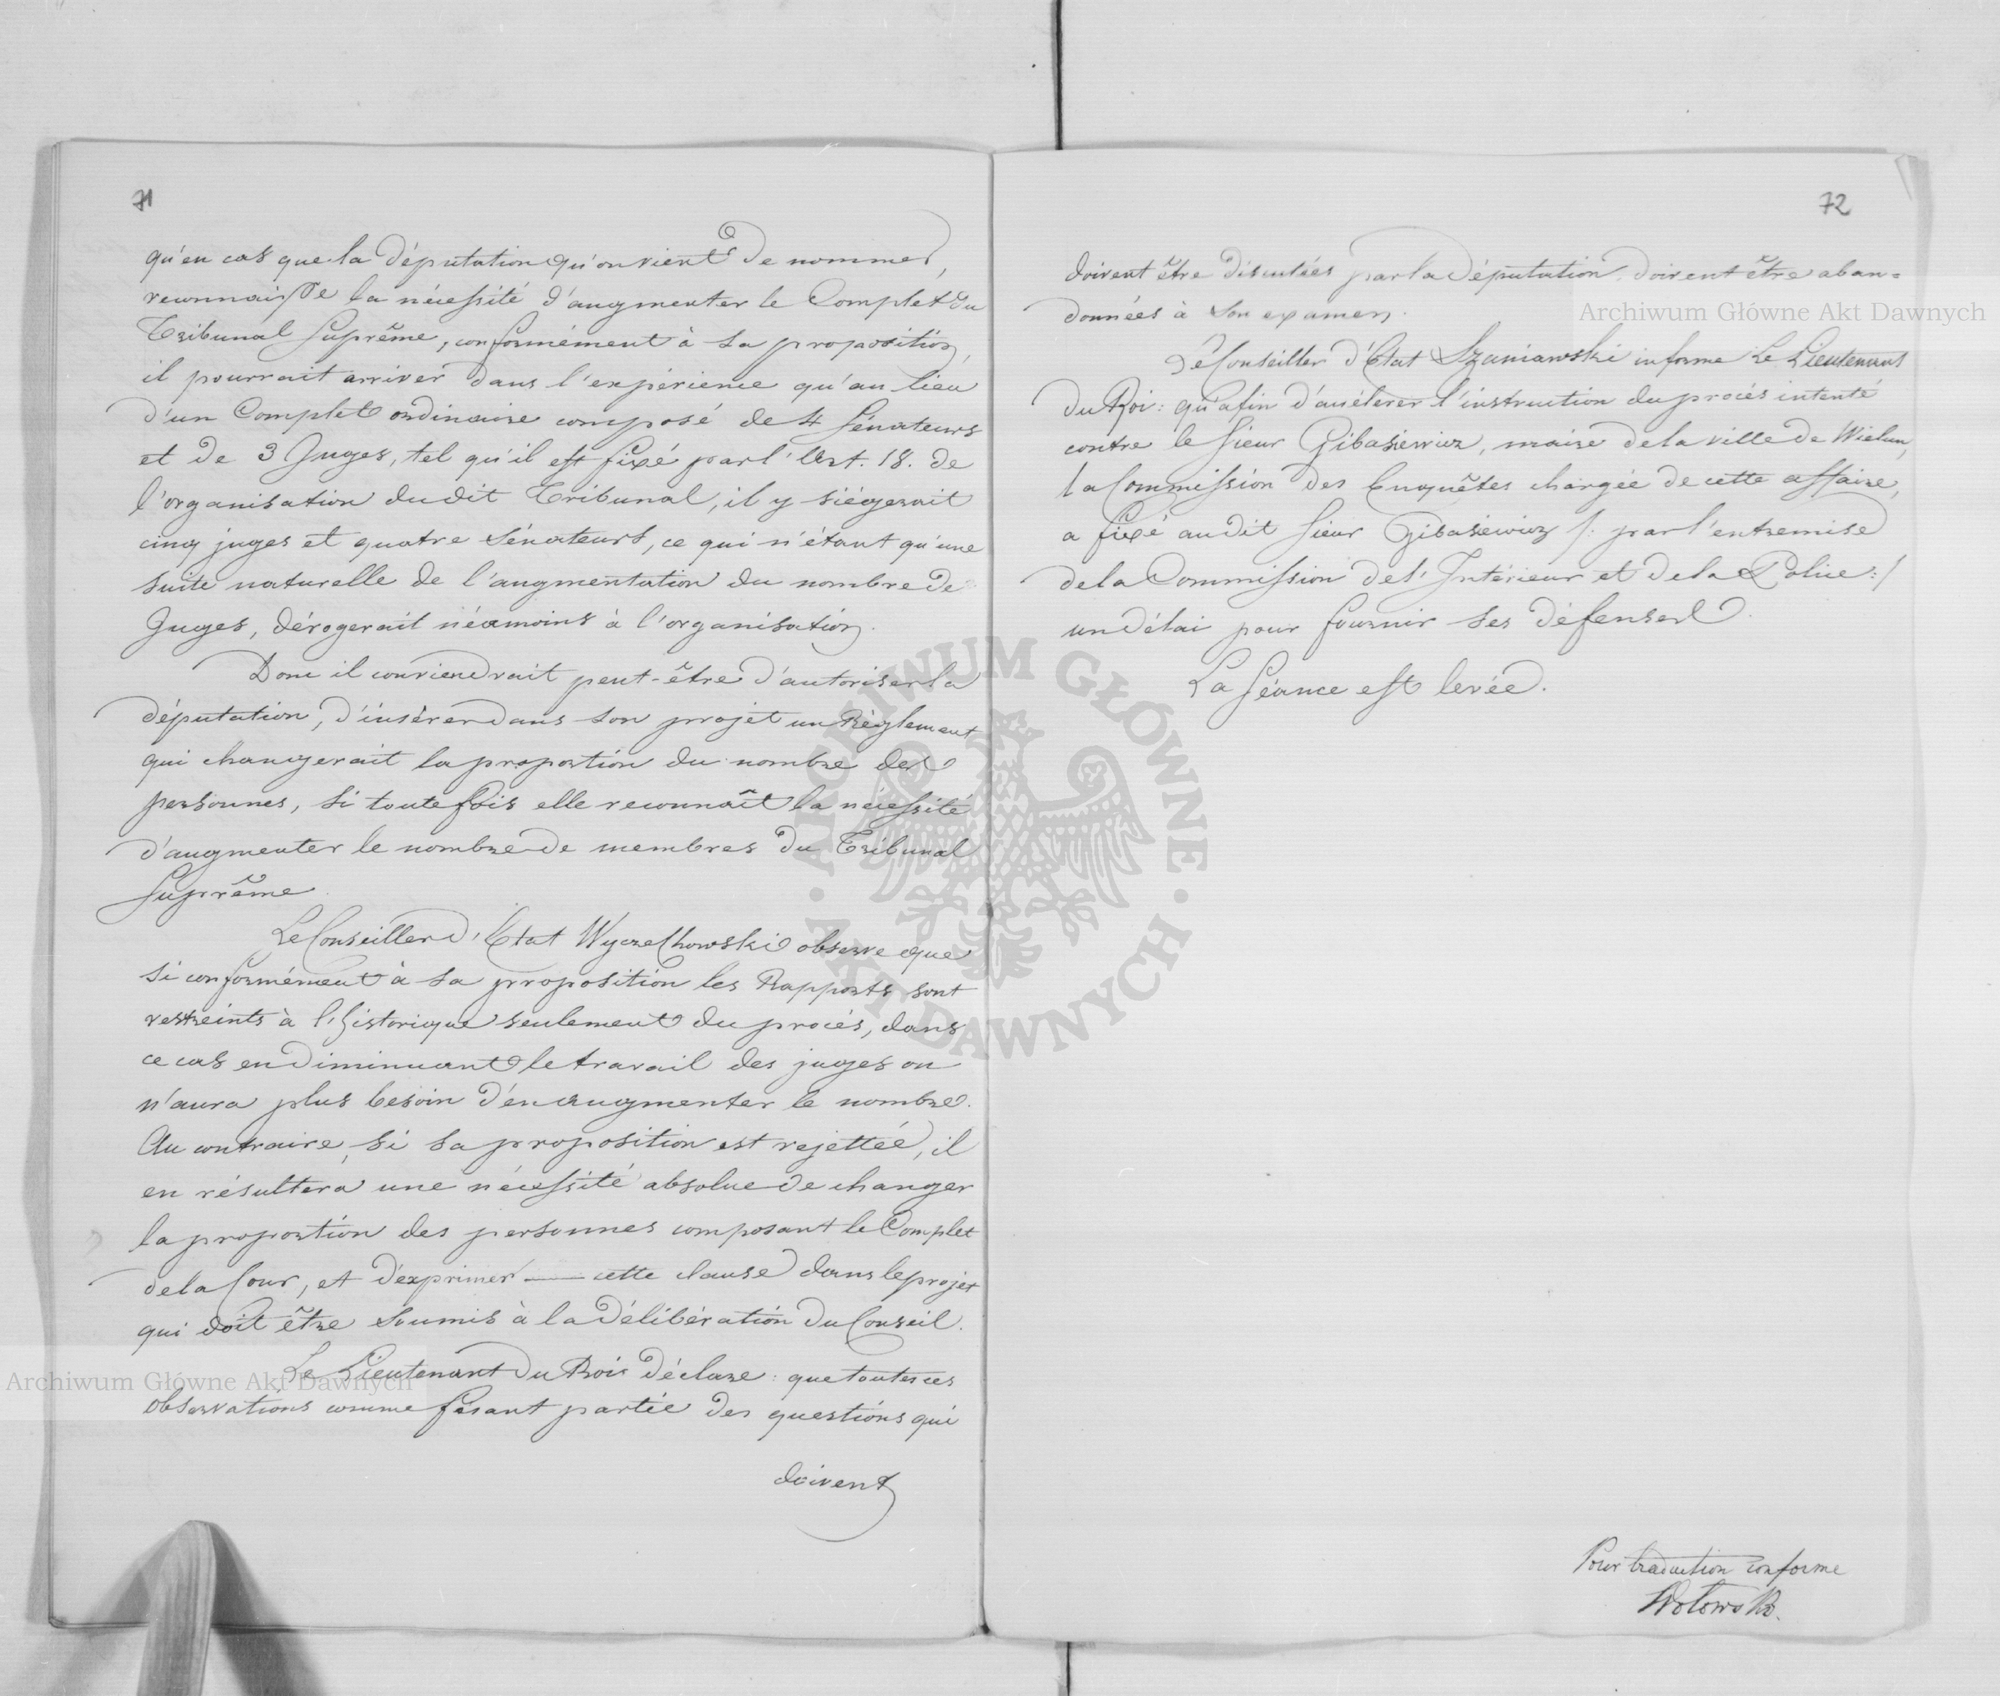 71
qu'en cas que la députation qu'on vient de nommer,
reconnaisse la nécessité d'augmenter le Complet du
Tribunal Suprême, conformément à sa proposition,
il pourrait arriver dans l'expérience qu'au lieu
d'un Complet ordinaire composé de 4 Sénateurs
et de 3 Juges, tel qu'il est fixé par l'Art. 18. de
l'organisation dudit Tribunal, il y siégerait
cinq juges et quatre Sénateurs, ce qui n'étant qu'une
suite naturelle de l'augmentation du nombre de
Juges, dérogerait néamoins à l'organisation.
Donc il conviendrait peut-être d'autoriser la
députation, d'insérer dans son projet un Règlement
qui changerait la proportion du nombre des
personnes, si toutefois elle reconnaît la nécessité
d'augmenter le nombre de membres du Tribunal
Suprême.
Le Conseiller d'Etat Wyczechowski observe que
si conformément à sa proposition les Rapports sont
restreints à l'historique seulement du procés, dans
ce cas en diminuant le travail des juges on
n'aura plus besoin d'en augmenter le nombre.
Au contraire, si sa proposition est rejettée, il
en résultera une nécessité absolue de changer
la proportion des personnes composant le Complet
de la Cour, et d'exprimer cette clause dans le projet
qui doit être soumis à la délibération du Conseil.
Le Lieutenant du Roi déclare: que toutes ces
observations comme fesant partie des questions qui
doivent
72
doivent être discutées par la députation, doivent être aban=
données à son examen.
Le Conseiller d'Etat Szaniawski informe Le Lieutenant
du Roi: qu'afin d'accélerer l'instruction du procés intenté
contre le Sieur Gibasiewicz, maire de la ville de Wielun,
la Commission des Enquêtes chargée de cette affaire,
a fixé audit Sieur Gibasiewicz /: par l'entremise
de la Commission de l'Intérieur et de la Police :/
un délai pour fournir ses défenses.
La Séance est levée.
Pour traduction conforme
Wołowski.
Archiwum Główne Akt Dawnych
Archiwum Główne Akt Dawnych
ARCHIWUM GŁÓWNE · AKT DAWNYCH ·